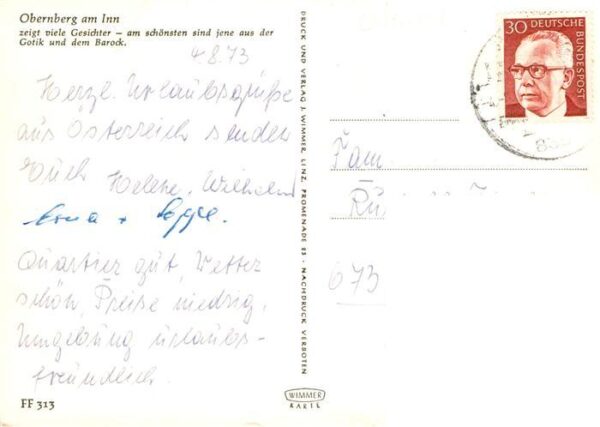 Obernberg am Inn
zeigt viele Gesichter – am schönsten sind jene aus der
Gotik und dem Barock.
4.8.73
Herzl. Urlaubsgrüße
aus Österreich senden
Euch Helene, Wilhelm
Erna +
Quartier gut, Wetter
schön, Preise niedrig,
Umgebung urlaubs-
freundlich.
FF 313
DRUCK UND VERLAG J. WIMMER, LINZ, PROMENADE 23 · NACHDRUCK VERBOTEN
WIMMER
KARTE
30 DEUTSCHE
BUNDESPOST
Fam
Rü
673